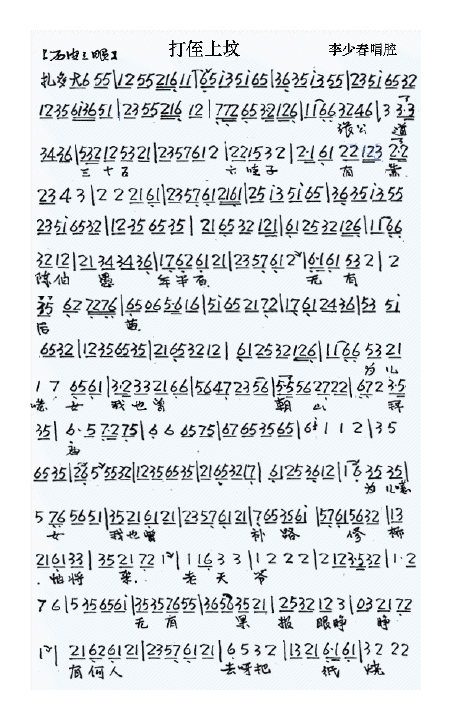 打侄上坟
李少春唱腔
扎多大6 55|12552161 1|165i35i65|3635i355|235i6532
1235 61 3651|23552216 12|772 6532126|1166 3246|3 3·3
张公 道
3436|532125321|2357612|221532|2·161 22123 2·2
三十五 六 子 有
2343|2 2 2161|2357612161|25i35i65|3635i355
235i6532|12·356535|216532121|6125 32126|1166
3212|21343436|17626121|23576 12|6·161 532|2
陈伯愚 年半百 无有
35 627276|6506 5·616|5i652172|17612436|53 5i
后 苗
6532|12356535|21653212|612532126|1166 5321
为儿
17 6561|3·2332166|5647235 6|5·5562722|672 3·5
女 我也曾 朝山 拜
35|6·57275|6 6 6575|67656565|6i 1 1 2|35
庙
为儿
5 765651|35216121|23576121|76535 6i|57615632|13
女 我也曾 补路 修桥
216133|352172 1|1163 3|1 2 2 2|2 123·532|1·2
老天爷
76|5 356566i|35357655|365635 21|253212 3|032172
无有 果报 眼睁 睁
1|21626121|23576121|6 532|1321 6·161|32 22
有何人 去呀把 纸 烧